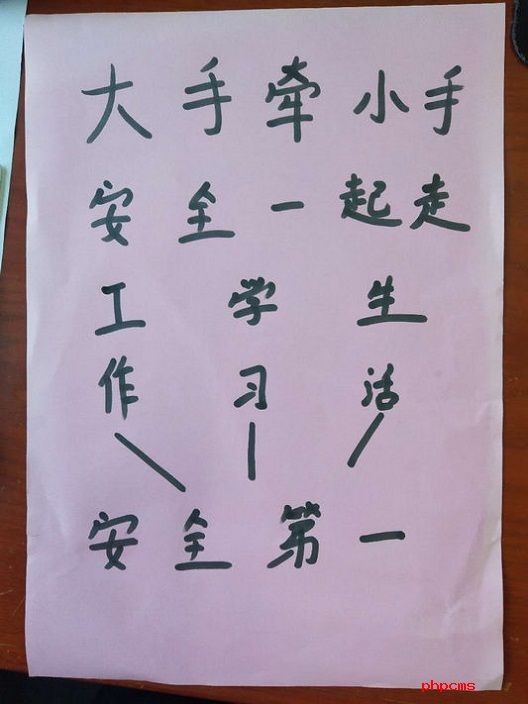 大手牵小手
安全一起走
工作 学习 生活
安全第一
phpcms